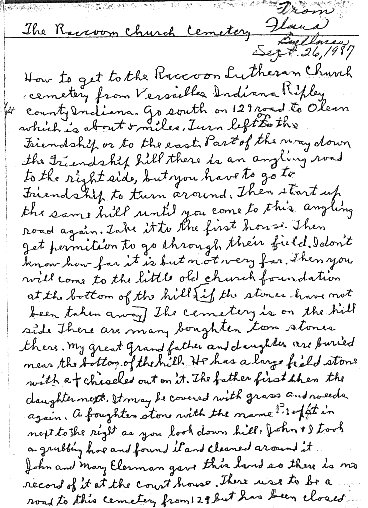 From
The Raccoon Church Cemetery
Sept. 26, 1997
How to get to the Raccoon Lutheran Church
cemetery from Versailles Indiana Ripley
County Indiana. Go south on 129 road to Olean
which is about 5 miles. Turn left to the
Friendship or to the east. Part of the way down
the Friendship hill there is an angling road
to the right side, but you have to go to
Friendship to turn around. Then start up
the same hill until you come to this angling
road again. Take it to the first house. Then
get permition to go through their field. I don't
know how far it is but not very far. Then you
will come to the little old church foundation
at the bottom of the hill [if the stones have not
been taken away] The cemetery is on the hill
side There are many boughten tom stones
there. My great Grand father and daughter are buried
near the bottom of the hill. He has a large field stone
with a † chiseled out on it. The father first then the
daughter next. It may be covered with grass and weeds
again. A boughten stone with the name Proffit in
next to the right as you look down hill. John & I took
a grubbing hoe and found it and cleaned around it
John and Mary Elerman gave this land so there is no
record of it at the court house. There use to be a
road to this cemetery from 129 but has been closed